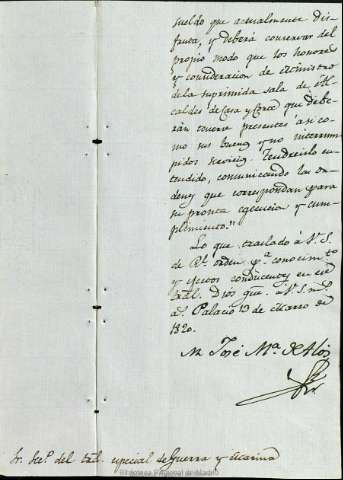 sueldo que actualmente dis-
fruta, y deberá conservar del
propio modo que los honores
y consideracion de Ministro
de la suprimida sala de Al-
caldes de Casa y Corte que debe-
rán tenerse presentes asi co-
mo sus buenos y no interrum-
pidos servicios. Tendreislo en-
tendido, comunicando las or-
denes que correspondan para
su pronta egecucion y cum-
plimiento."
Lo que traslado á V. S.
de Rl. orden pa. conocimto.
y efectos conducentes en ese
tral. Dios gue. á V. S. ms.
as. Palacio 13 de Marzo de
1820.
José Ma. de Alós
Sr. Sec.o del tral. especial de Guerra y Marina
Biblioteca Regional de Madrid